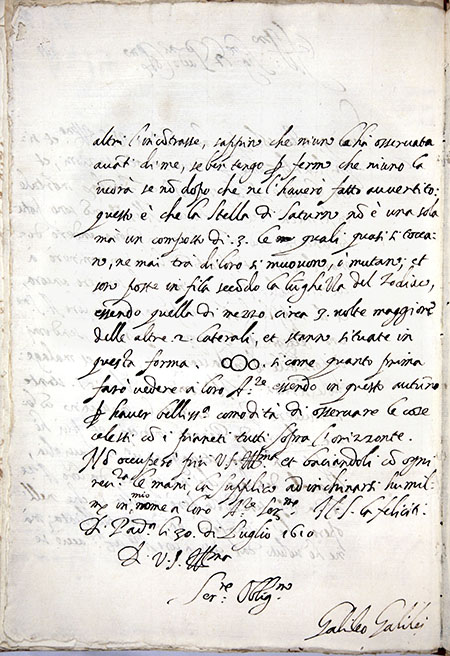 altri l'incōtrasse, sappino che niuno la ha osservata
avāti di me, se ben tengo p fermo che niuno la
vedrà se nō dopo che ne l'haverò fatto avvertito:
questo è che la stella di Saturno nō è una sola
mà un composto di .3. le quali quasi si tocca-
no, ne mai trà di loro si muovono, ò mutano; et
son poste in fila secōdo la lūghezza del Zodiaco,
essendo quella di mezzo circa 3. volte maggiore
delle altre 2. laterali, et stanno situate in
questa forma . oOo . si come quanto prima
farò vedere a loro A.ze essendo in questo autūno
p haver belliss.a comodità di osservare le cose
celesti cō i pianeti tutti sopra l'orizonte.
Nō occuperò più V. S. Ill.ma et baciandoli cō ogni
rev.za le mani, la supplico ad inchinarsi humil.
in mio nome a loro A.ze Ser.me N. S. la feliciti.
Di Pad.a li 30. di Luglio 1610
D. V. S. Ill.ma
Ser.re Oblig.mo
Galileo Galilei